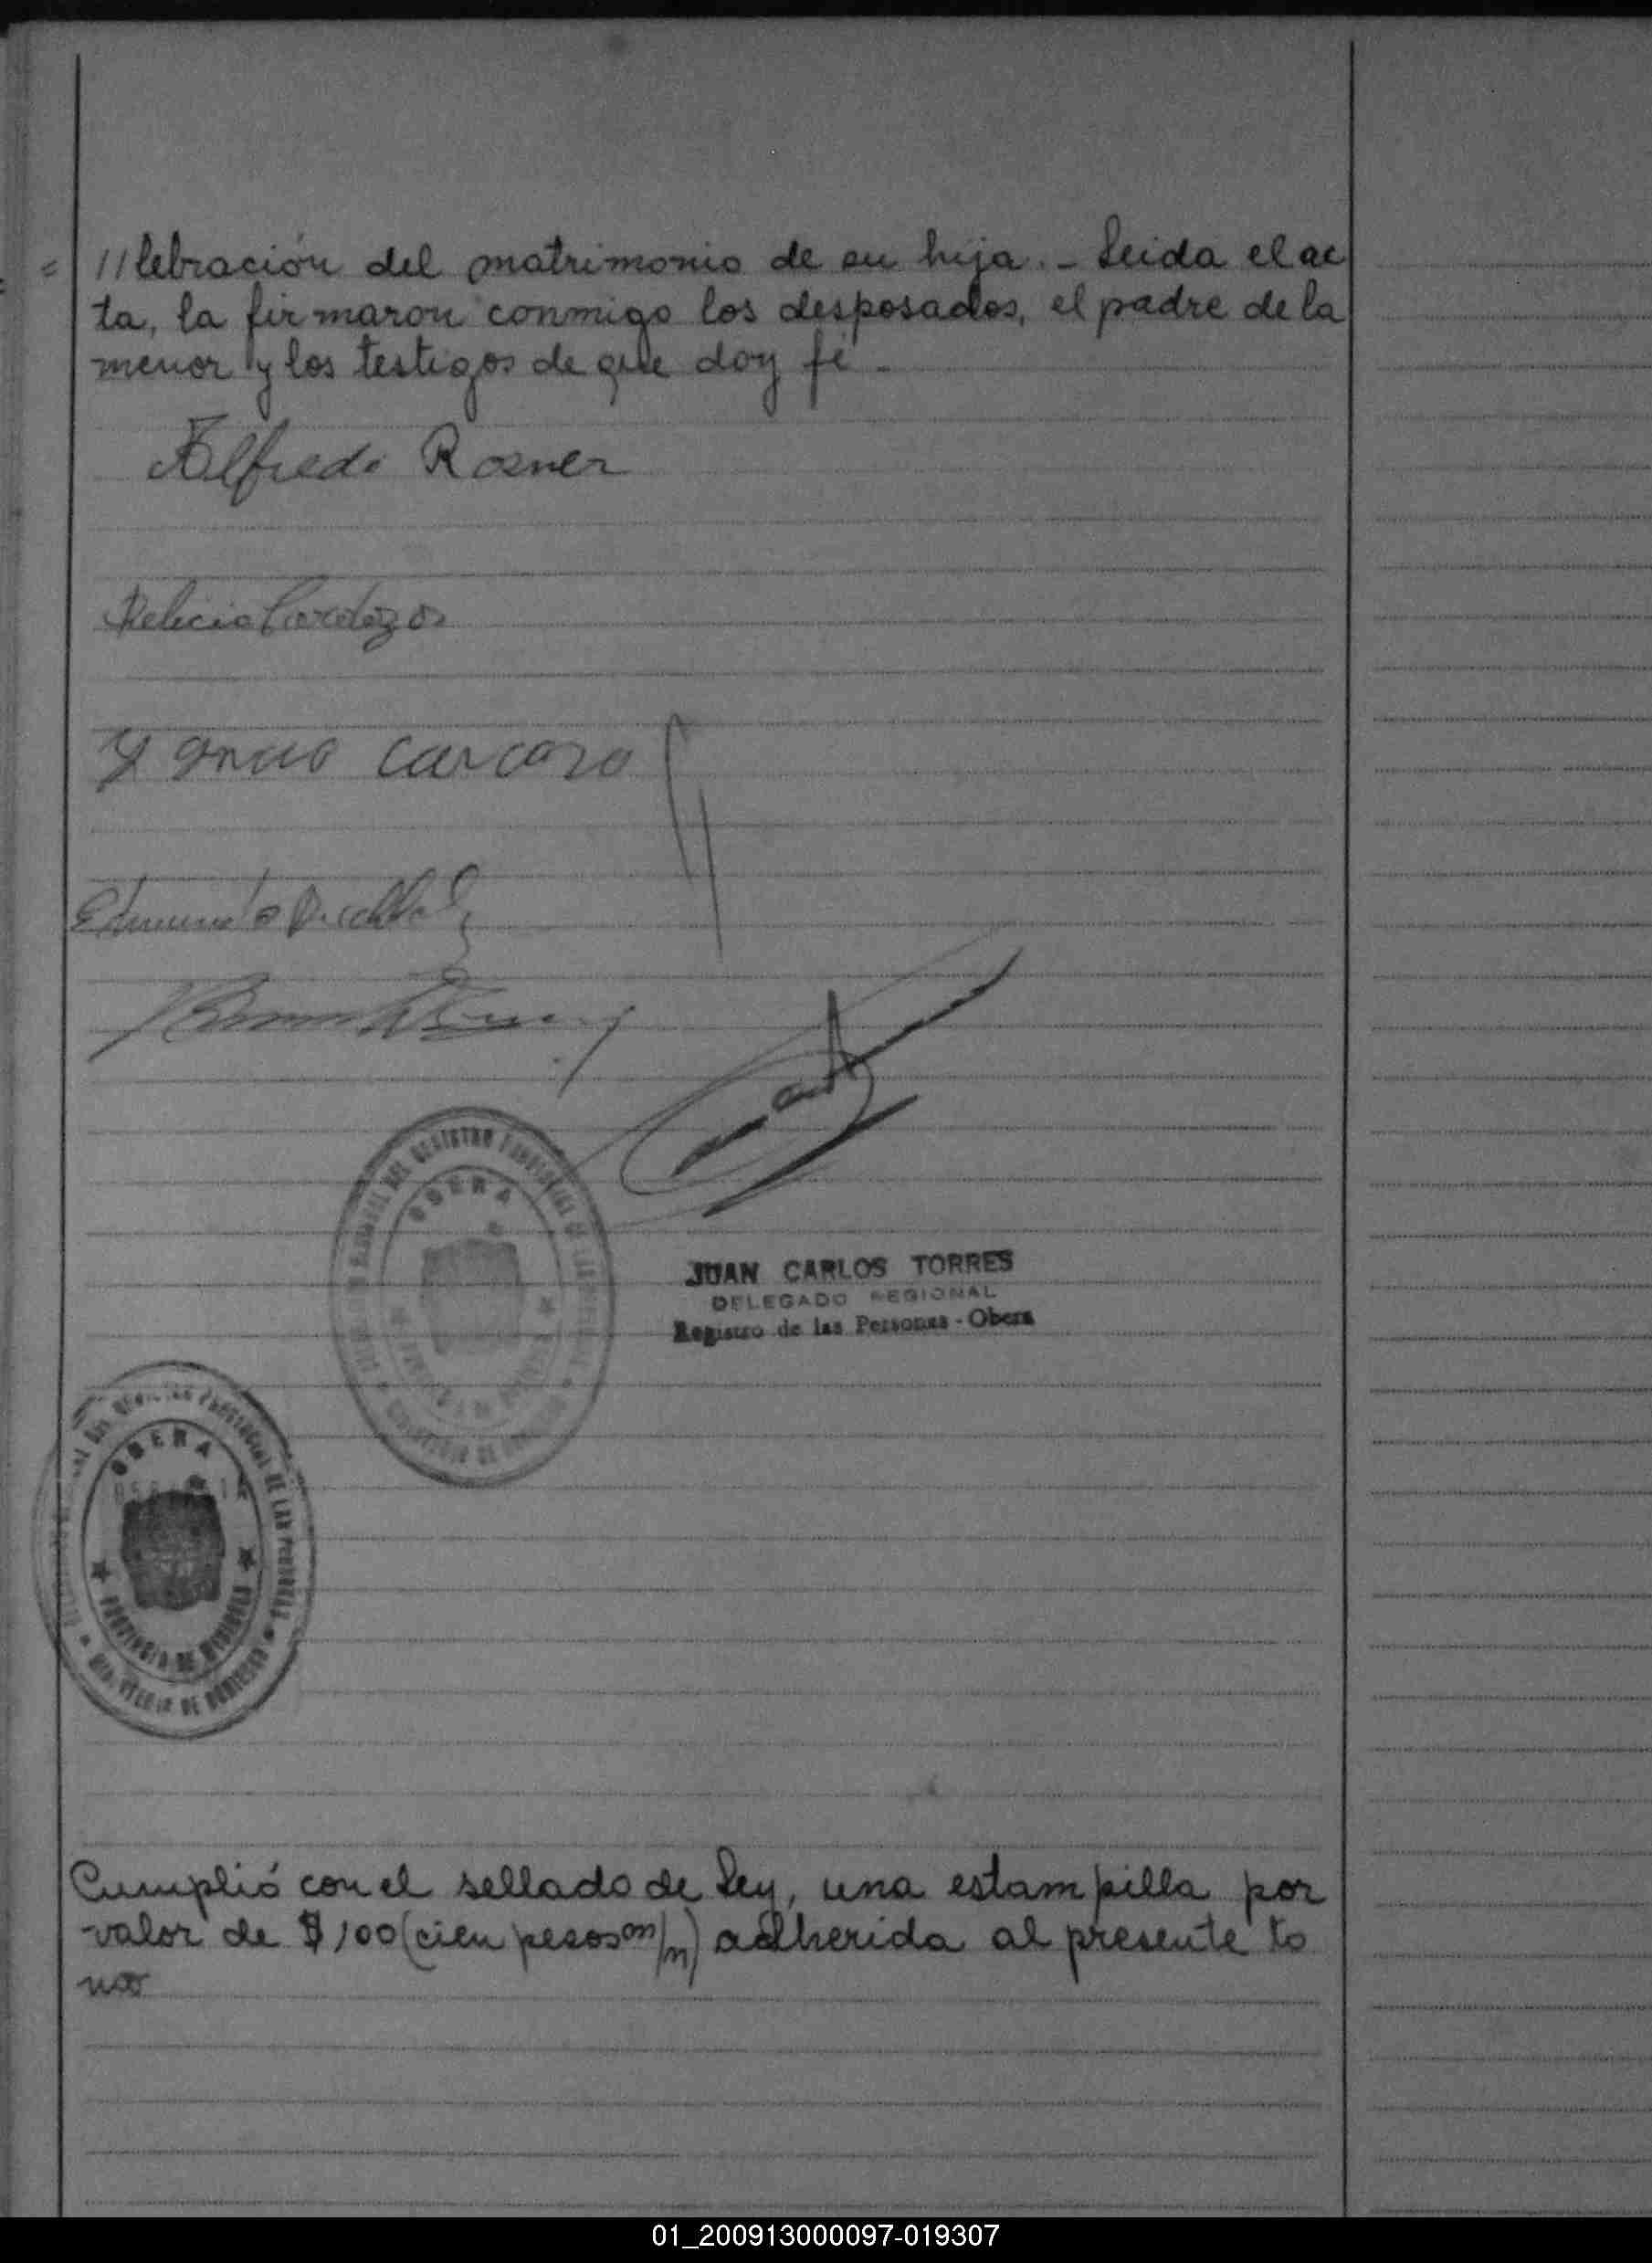 //lebración del matrimonio de su hija.- Leida el ac
ta, la firmaron conmigo los desposados, el padre de la
menor y los testigos de que doy fé.-
Alfredo Rosner
Delicia Cardozo
Juan Carlos Torres
DELEGADO REGIONAL
Registro de las Personas - Obera
OBERA
PROVINCIAL DE LAS PERSONAS
OBERA
PROVINCIA DE MISIONES
Cumplió con el sellado de Ley, una estampilla por
valor de $ 100 (cien pesos m/n) adherida al presente to
mo
01_200913000097-019307